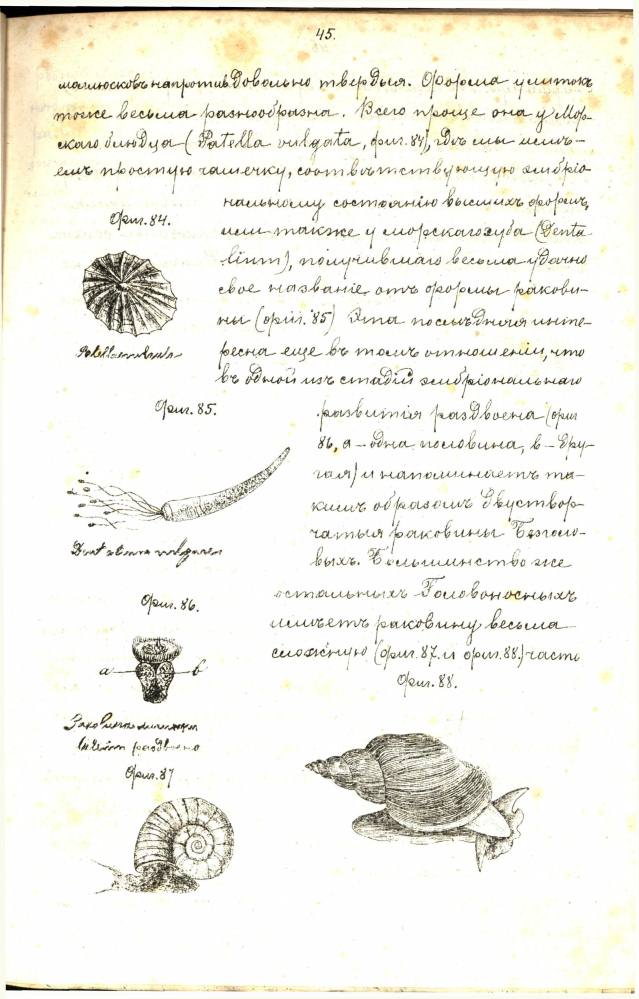 45.
малюсковъ напротивъ довольно твердыя. Форма улитокъ
тоже весьма разнообразна. Всего проще она у Мор-
скаго блюдца (Patella vulgata, фиг. 84), гдѣ мы имѣ-
емъ простую чашечку, соотвѣтствующую эмбріо-
нальному состоянію высшихъ формъ,
или также у морскаго зуба (Denta-
lium), получившаго весьма удачно
свое названіе отъ формы ракови-
ны (фиг. 85) Эта послѣдняя инте-
ресна еще въ томъ отношеніи, что
въ одной изъ стадій эмбріональнаго
Фиг. 84.
Patella vulgata
развитія раздвоена (фиг
86, а – одна половина, в – дру-
гая) и напоминаетъ та-
кимъ образомъ двуствор-
чатыя раковины Безголо-
выхъ. Большинство же
остальныхъ Головоносныхъ
имѣетъ раковину весьма
сложную (фиг. 87 и фиг. 88.) часть
Фиг. 85.
Dentalium vulgare
Фиг. 86.
a
b
Раковина
раздвоена
Фиг. 87
Фиг. 88.